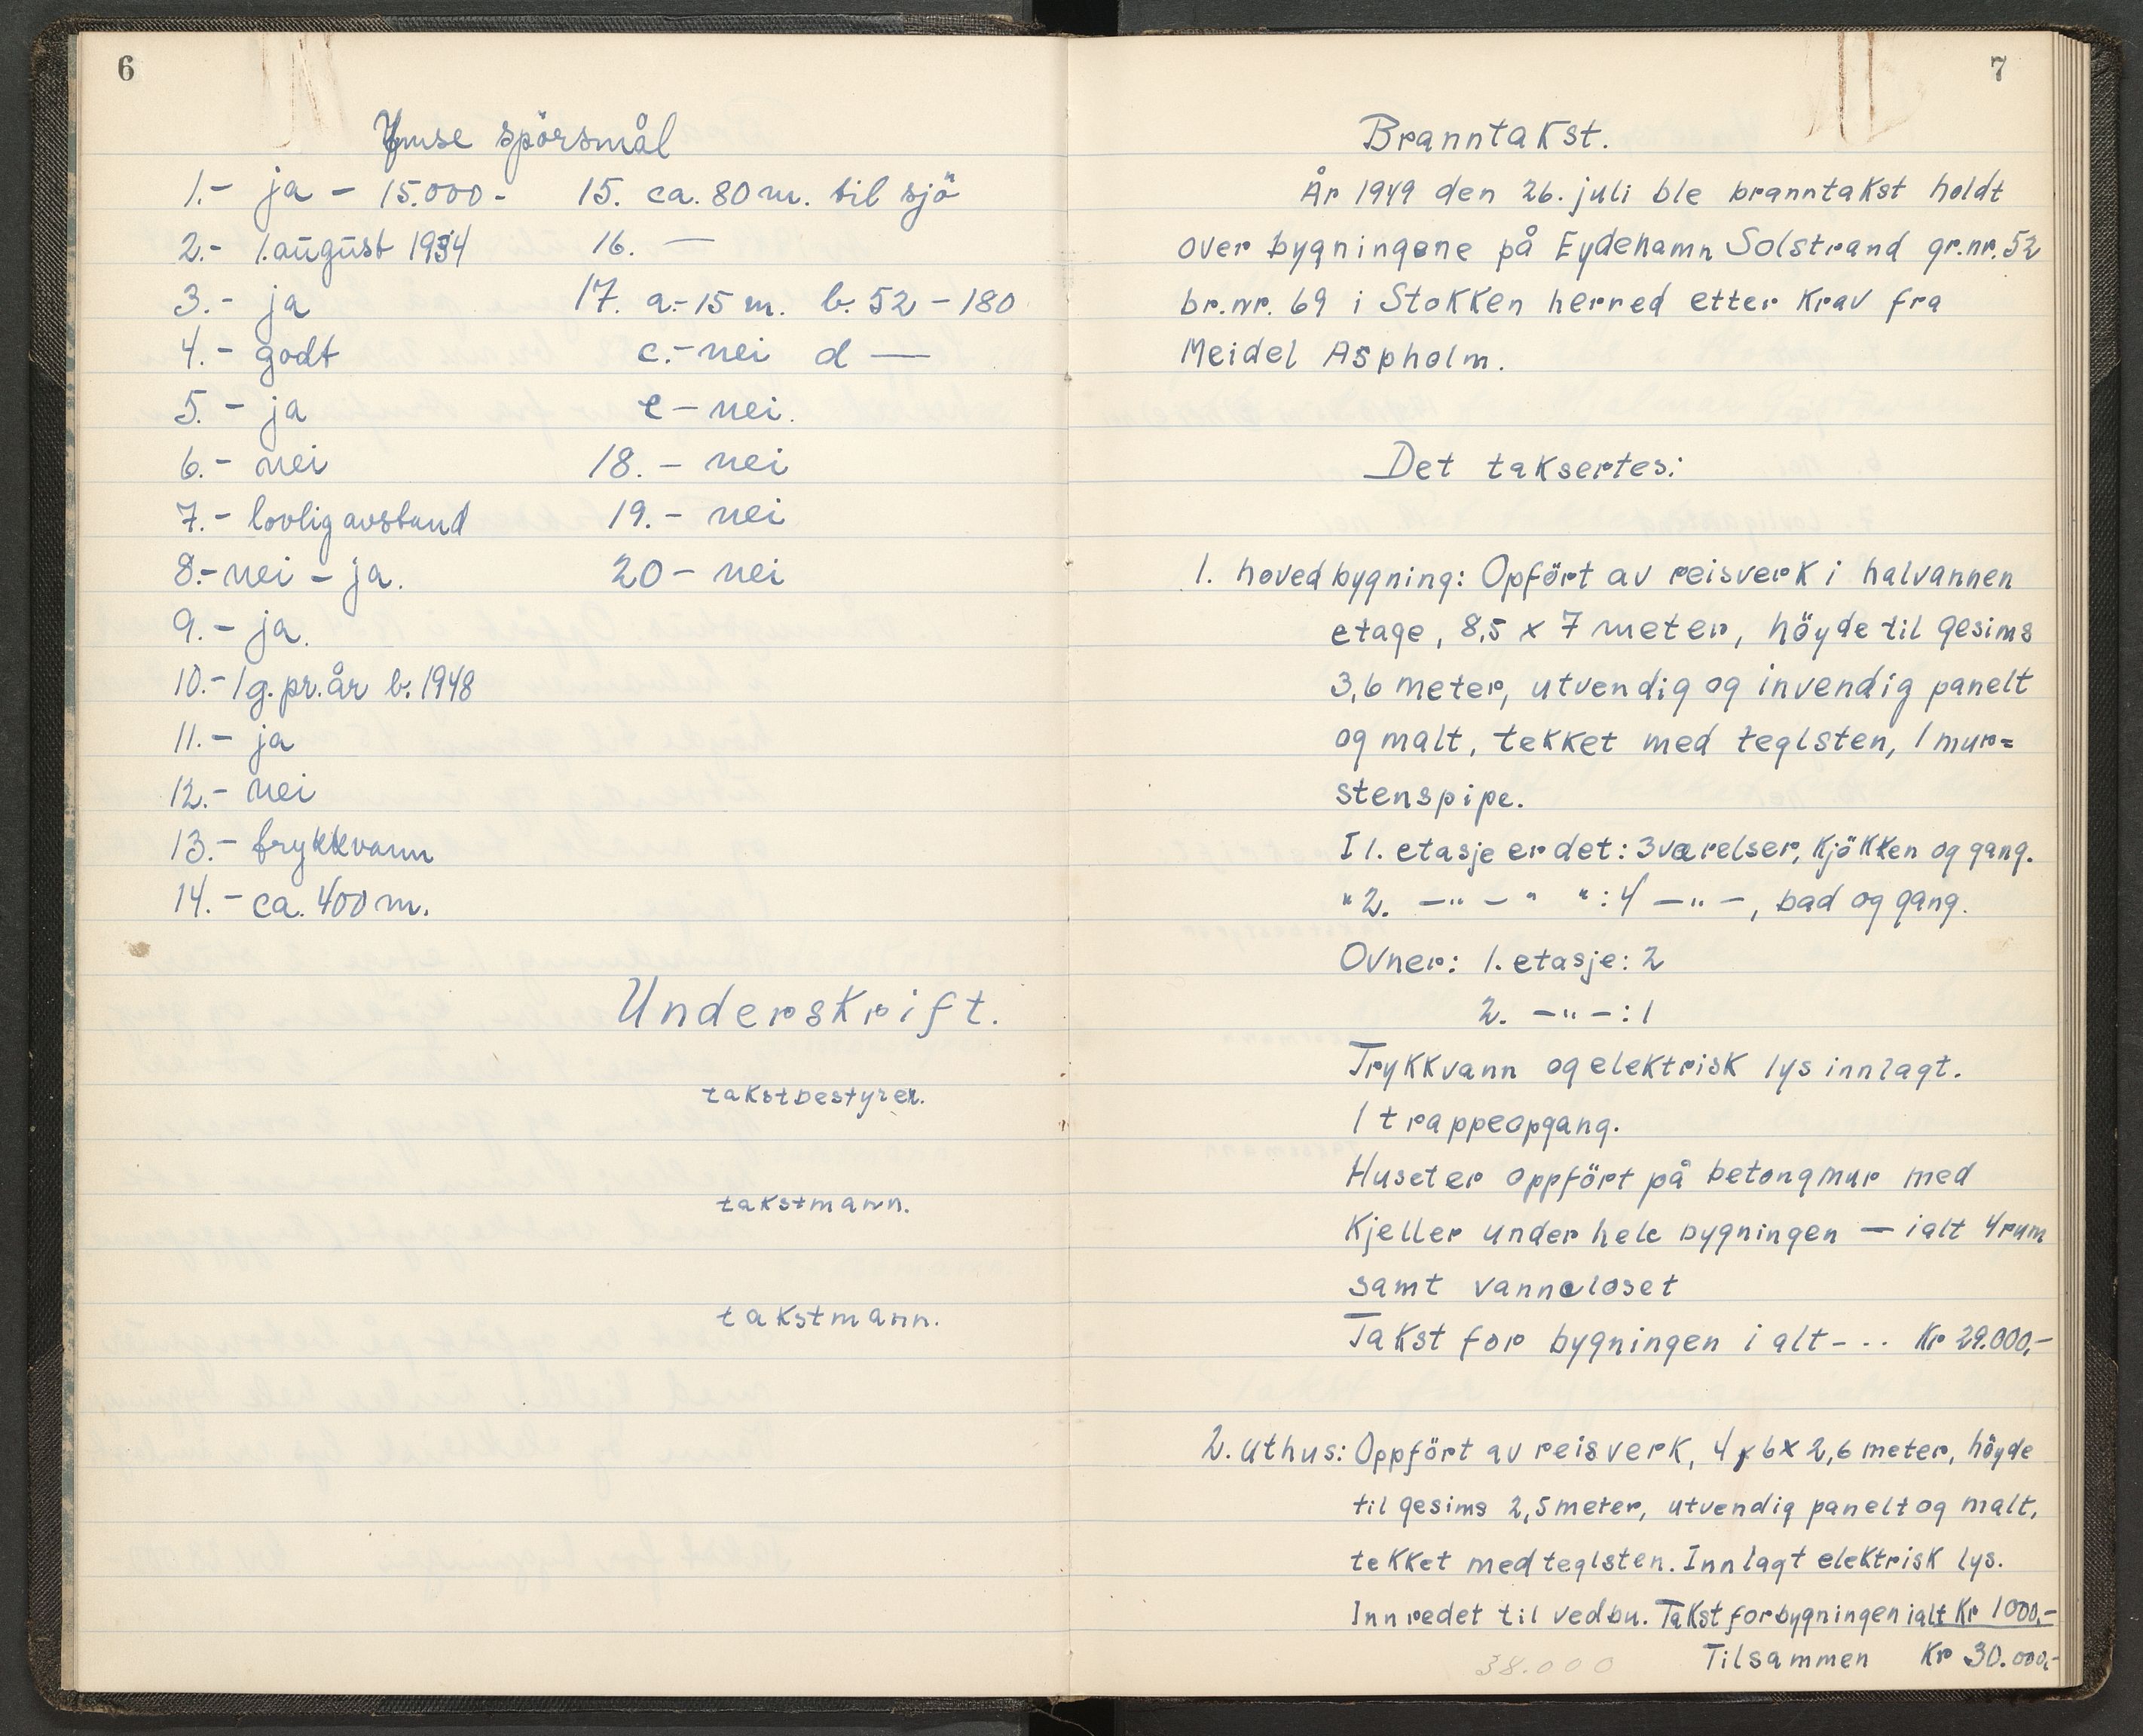 6
Ymse spörsmål
1.- ja - 15.000-
2.- 1. august 1934
3.- ja
4.- godt
5.- ja
6.- nei
7.- lovlig avstand
8.- nei - ja.
9.- ja.
10.- 1 g. pr. år b. 1948
11.- ja
12.- nei
13.- trykkvann
14.- ca. 400 m.
15. ca. 80 m. til sjö
16. —
17. a.- 15 m. b. 52 - 180
c.- nei d —
e - nei.
18. - nei
19. - nei
20 - nei
Underskrift.
takstbestyrer.
takstmann.
takstmann.
7
Branntakst.
År 1949 den 26. juli ble branntakst holdt
over bygningene på Eydehamn Solstrand gr.nr. 52
br.nr. 69 i Stokken herred etter krav fra
Meidel Aspholm.
Det taksertes:
1. hovedbygning: Opfört av reisverk i halvannen
etage, 8,5 x 7 meter, höyde til gesims
3,6 meter, utvendig og invendig panelt
og malt, tekket med teglsten, 1 mur=
stenspipe.
I 1. etasje er det: 3 værelser, kjökken og gang.
" 2. —"— " ": 4 —"—, bad og gang.
Ovner: 1. etasje: 2
2. —"—: 1
Trykkvann og elektrisk lys innlagt.
1 trappeopgang.
Huset er oppfört på betongmur med
kjeller under hele bygningen — ialt 4 rum
samt vanncloset
Takst for bygningen i alt - - - Kr 29.000,-
2. uthus: Oppfört av reisverk, 4 x 6 x 2,6 meter, höyde
til gesims 2,5 meter, utvendig panelt og malt,
tekket med teglsten. Innlagt elektrisk lys.
Innredet til vedbu. Takst for bygningen ialt Kr 1000,-
Tilsammen Kr 30.000,-
38.000